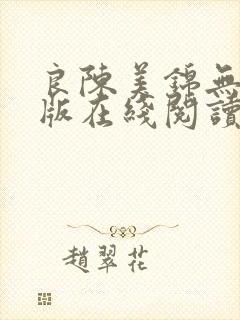 良陳美錦無
版在綫閱讀
趙翠花